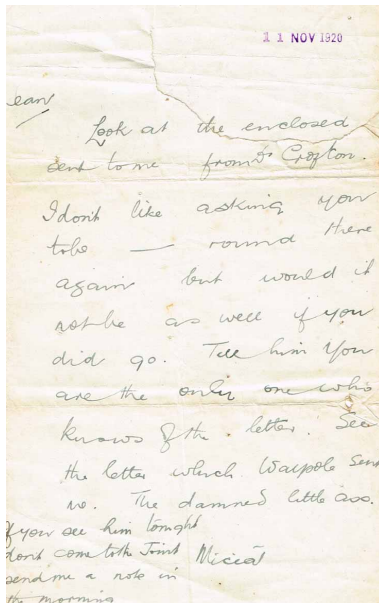 11 NOV 1920
ean
Look at the enclosed
sent to me from Dr Crofton.
I dont like asking you
to be — round there
again but would it
not be as well if you
did go. Tell him you
are the only one who
knows of the letter. See
the letter which Walpole sent
me. The damned little ass.
If you see him tonight
dont come to the Joint
Mícéal
send me a note in
the morning